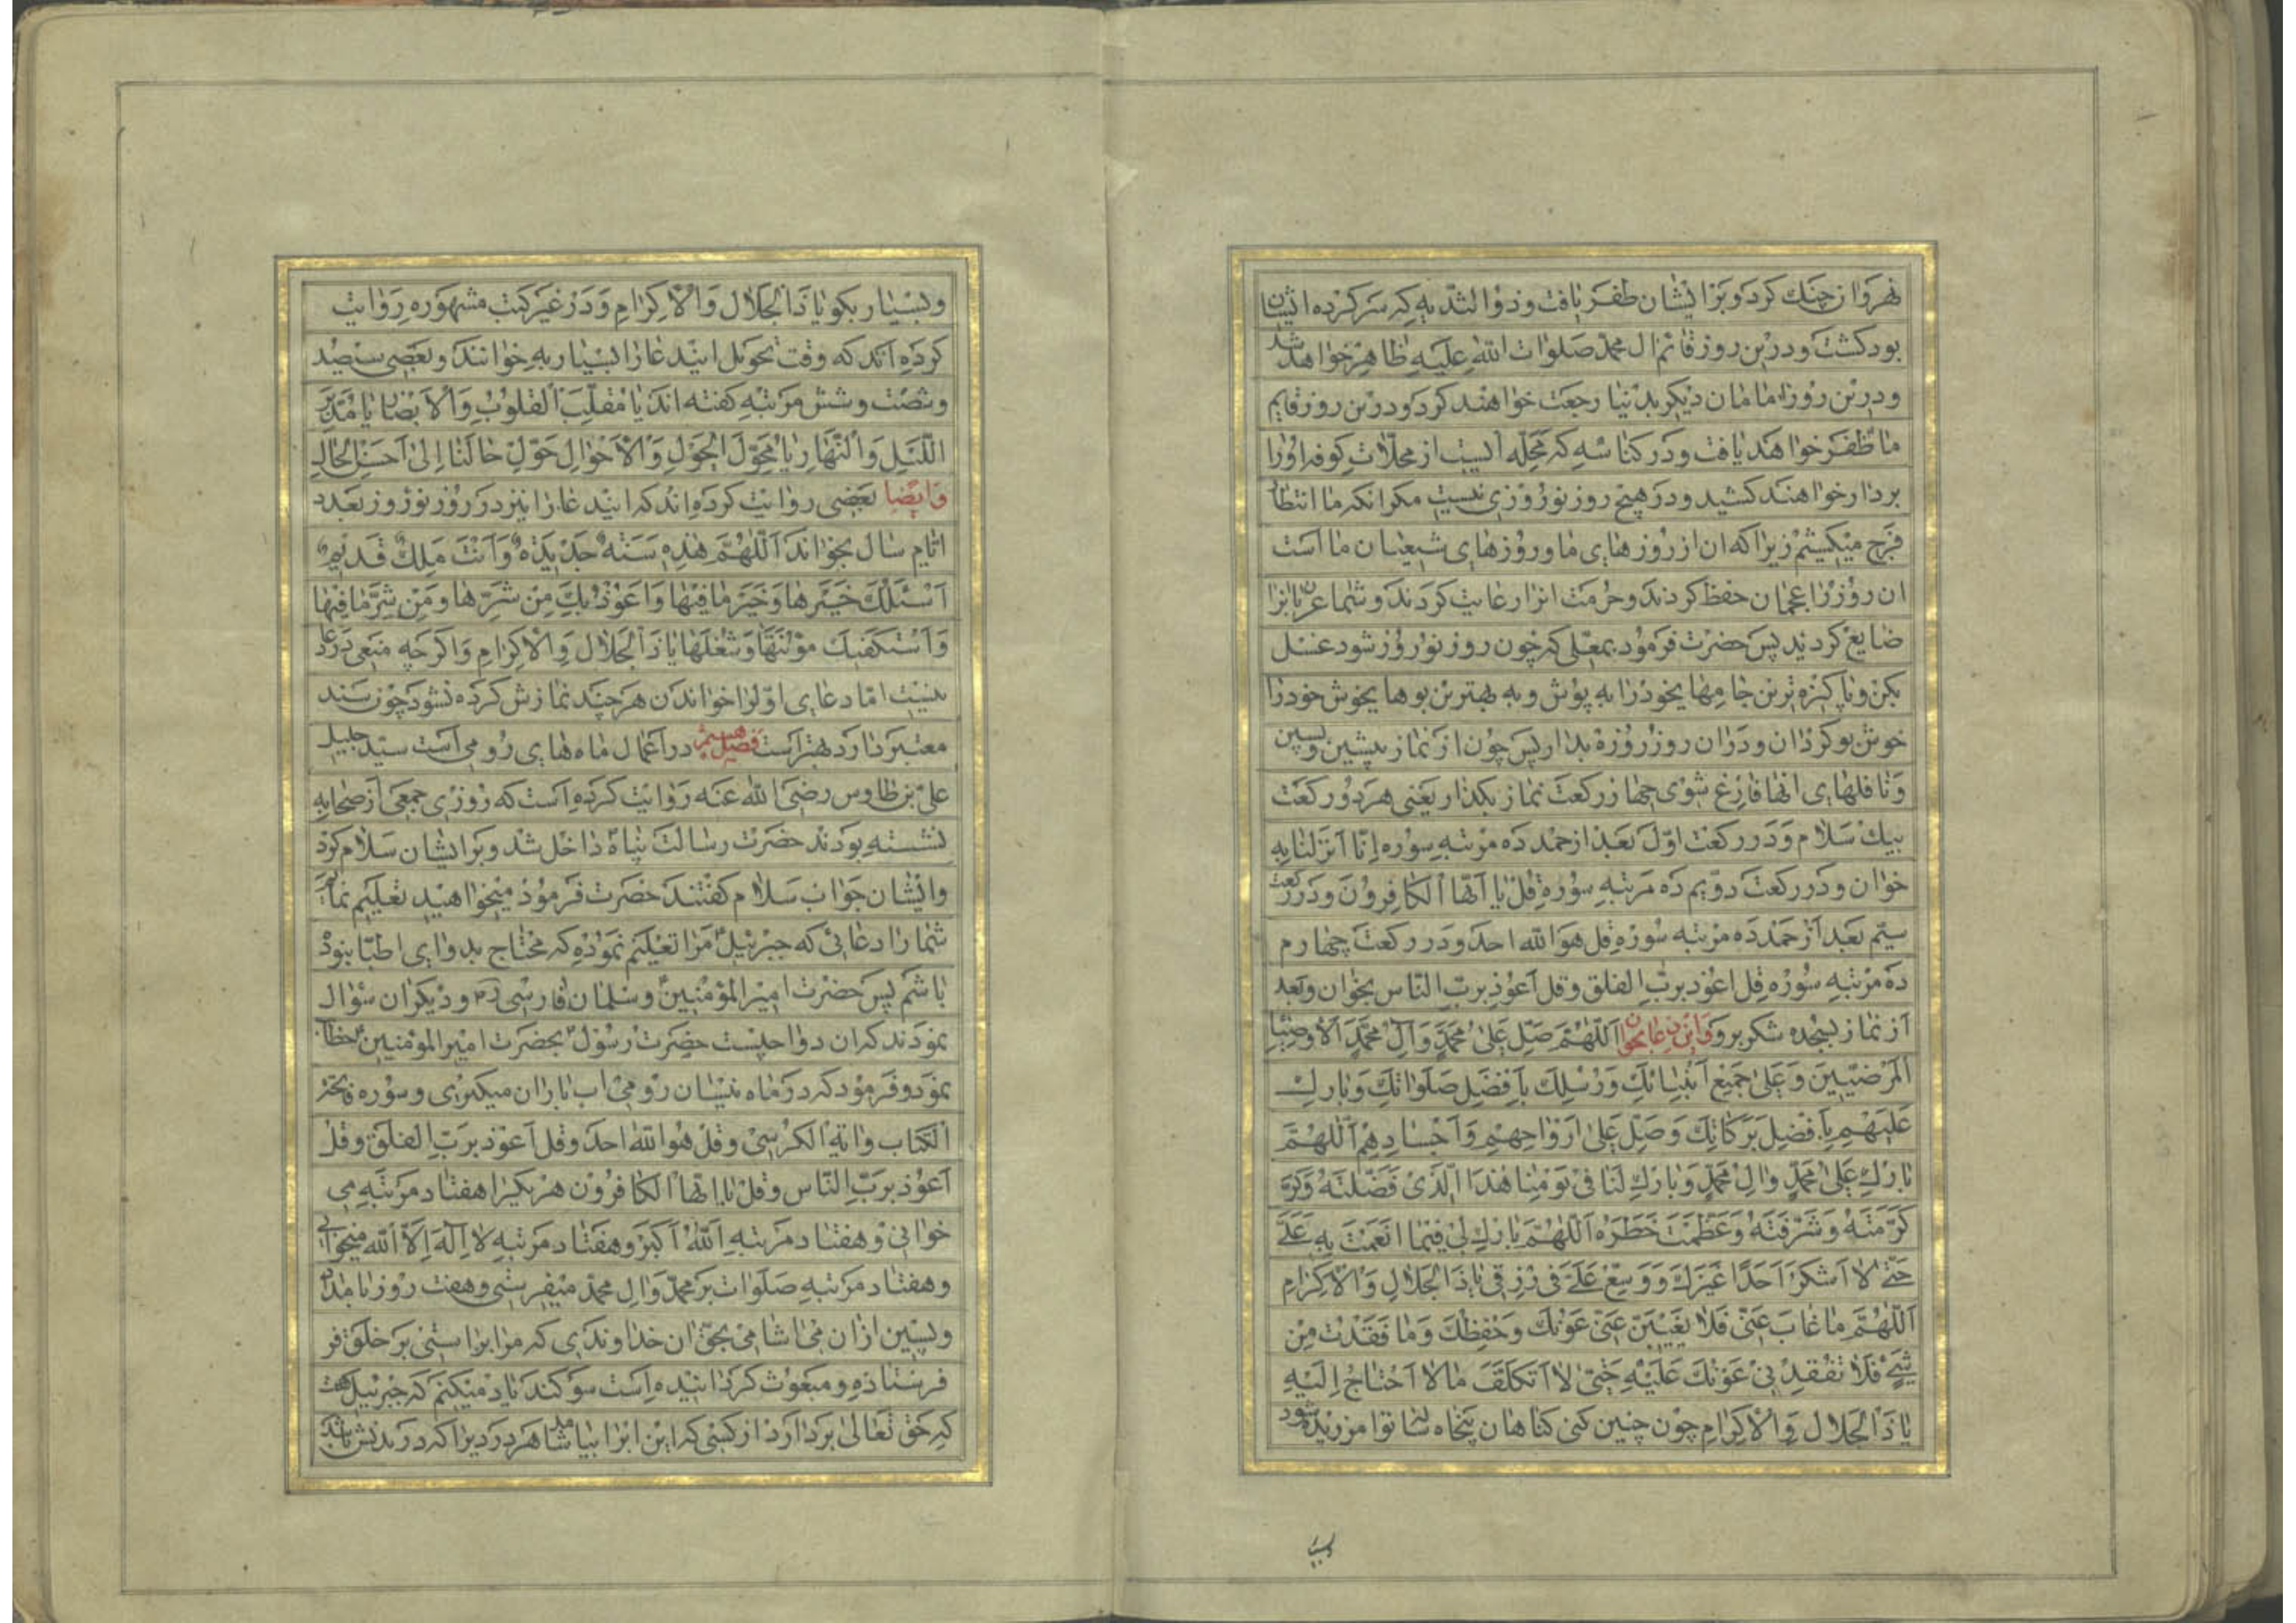 نهروان جنك كرد و بر ايشان ظفر يافت و ذو الثديه كه سركرده ايشان
بود كشت و درين روز قائم ال محمد صلوات الله عليه ظاهر خواهد شد
و درين روز امامان ديكر بدنيا رجعت خواهند كرد و درين روز قايم
ما ظفر خواهد يافت و در كناسه كه محله ايست از محلات كوفه او را
بردار خواهند كشيد و در هيچ روز نوروزى نيست مكر انكه ما انتظار
فرج ميكشيم زيرا كه ان از روزهاى ما و روزهاى شيعيان ما است
ان روز را عجمان حفظ كردند و حرمت انرا رعايت كردند و شما عربان انرا
ضايع كرديد پس حضرت فرمود بمعلى كه چون روز نوروز شود غسل
بكن و پاكيزه ترين جامهاى خود را به پوش و به بهترين بوهاى خوش خود را
خوش بو كردان و در ان روز روزه بدار پس چون از نماز پيشين و پسين
و نافلهاى انها فارغ شوى چهار ركعت نماز بكذار يعنى هر دو ركعت
بيك سلام و در ركعت اول بعد از حمد ده مرتبه سوره انا انزلناه
خوان و در ركعت دويم ده مرتبه سوره قل يا ايها الكافرون و در ركعت
سيم بعد از حمد ده مرتبه سوره قل هو الله احد و در ركعت چهارم
ده مرتبه سوره قل اعوذ برب الفلق و قل اعوذ برب الناس بخوان و بعد
از نماز بسجده شكر برو و اين دعا بخوان اللهم صل على محمد و آل محمد الاوصياء
المرضيين و على جميع انبيائك و رسلك بافضل صلواتك و بارك
عليهم بافضل بركاتك و صل على ارواحهم و اجسادهم اللهم
بارك على محمد و ال محمد و بارك لنا فى يومنا هذا الذى فضلته و
كرمته و شرفته و عظمت خطره اللهم بارك لى فيما انعمت به على
حتى لا اشكر احدا غيرك و وسع على فى رزقى يا ذا الجلال و الاكرام
اللهم ما غاب عنى فلا يغيبن عنى عونك و حفظك و ما فقدت من
شئ فلا تفقدنى عونك عليه حتى لا اتكلف ما لا احتاج اليه
يا ذا الجلال و الاكرام چون چنين كنى كناهان پنجاه ساله تو امرزيده شود
و بسيار بكو يا ذا الجلال و الاكرام و در غير كتب مشهوره روايت
كرده اند كه وقت تحويل ايندعا را بسيار به خوانند و بعضى سيصد
و شصت و شش مرتبه كفته اند يا مقلب القلوب و الابصار يا مدبر
الليل و النهار يا محول الحول و الاحوال حول حالنا الى احسن الحال
و ايضا بعضى روايت كرده اند كه ايندعا را نيز در روز نوروز بعدد
ايام سال بخواند اللهم هذه سنة جديدة و انت ملك قديم
اسئلك خيرها و خير ما فيها و اعوذ بك من شرها و من شر ما فيها
و استكفيك مؤنتها و شغلها يا ذا الجلال و الاكرام و اكر چه منعى در دعا
نيست اما دعاى اول را خواندن هر چند نمازش كرده نشود چون سند
معتبر دارد بهتر است فصل هشتم در اعمال ماه هاى رومى است سيد جليل
على بن طاوس رضى الله عنه روايت كرده است كه روزى جمعى از صحابه
نشسته بودند حضرت رسالت پناه داخل شد و بر ايشان سلام كرد
و ايشان جواب سلام كفتند حضرت فرمود ميخواهيد تعليم نمايم
شما را دعائى كه جبرئيل مرا تعليم نموده كه محتاج بدواى اطبا نبوده
باشم پس حضرت امير المؤمنين و سلمان فارسى و ديكران سؤال
نمودند كه ان دوا چيست حضرت رسول بحضرت امير المؤمنين خطاب
نمود و فرمود كه در ماه نيسان رومى اب باران ميكيرى و سوره فاتحة
الكتاب و اية الكرسى و قل هو الله احد و قل اعوذ برب الفلق و قل
اعوذ برب الناس و قل يا ايها الكافرون هر يكيرا هفتاد مرتبه مى
خوانى و هفتاد مرتبه الله اكبر و هفتاد مرتبه لا اله الا الله ميخوانى
و هفتاد مرتبه صلوات بر محمد و ال محمد ميفرستى و هفت روز بامداد
و پسين از ان مى اشامى بحق ان خداوندى كه مرا براستى بر خلق فر
فرستاده و مبعوث كردانيده است سوكند ياد ميكنم كه جبرئيل كفت
كه حق تعالى بردارد از كسى كه اين ابرا بياشامد هر درديرا كه در بدنش باشد